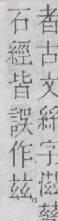 者古文絲字
石經皆誤作玆。